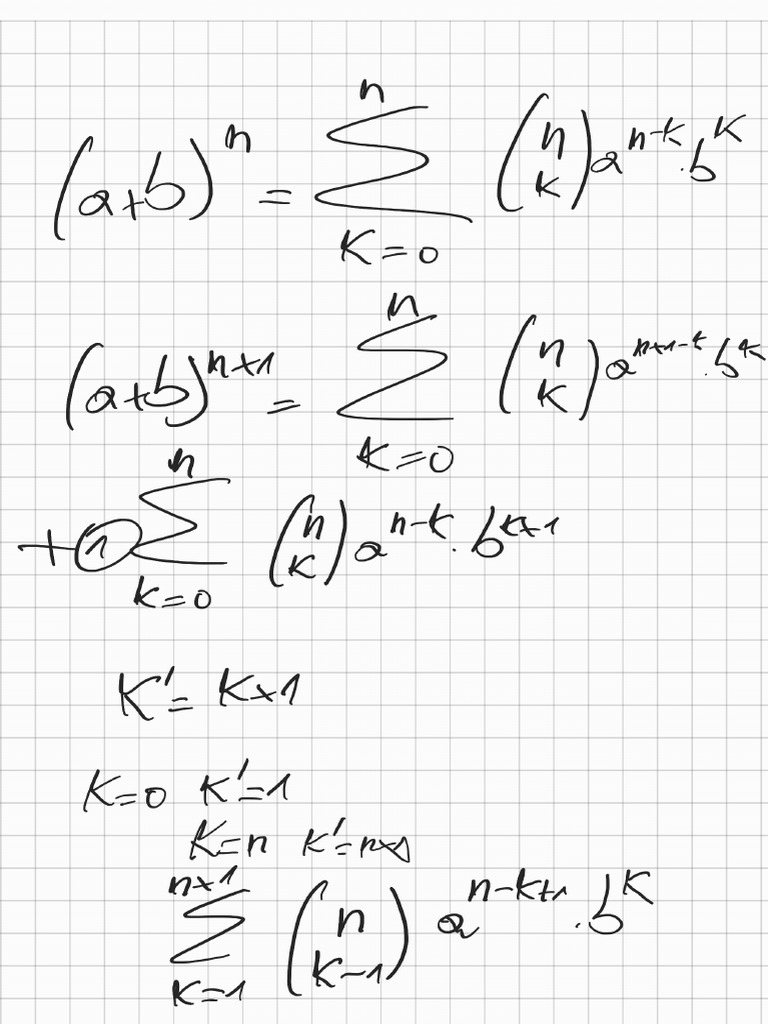 (a+b)^n = ∑_{k=0}^{n} \binom{n}{k} a^{n-k} · b^k
(a+b)^{n+1} = ∑_{k=0}^{n} \binom{n}{k} a^{n+1-k} · b^k
+ ① ∑_{k=0}^{n} \binom{n}{k} a^{n-k} · b^{k+1}
k' = k+1
k=0 k'=1
k=n k'=n+1
∑_{k=1}^{n+1} \binom{n}{k-1} a^{n-k+1} · b^k